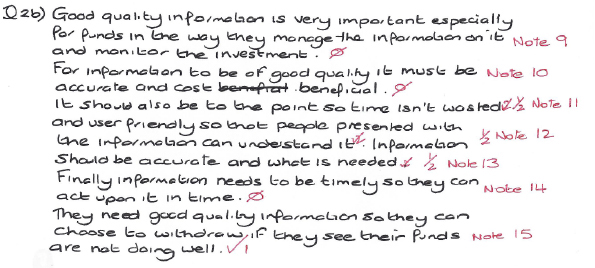 Q2b) Good quality information is very important especially
for funds in the way they manage the information on it Note 9
and monitor the investment. Ø
For information to be of good quality it must be Note 10
accurate and cost benefical. Ø
It should also be to the point so time isn't wasted ½ Note 11
and user friendly so that people presented with
the information can understand it. Information ½ Note 12
should be accurate and what is needed ½ Note 13
Finally information needs to be timely so they can Note 14
act upon it in time. Ø
They need good quality information so they can
choose to withdraw, if they see their funds Note 15
are not doing well. ✓1